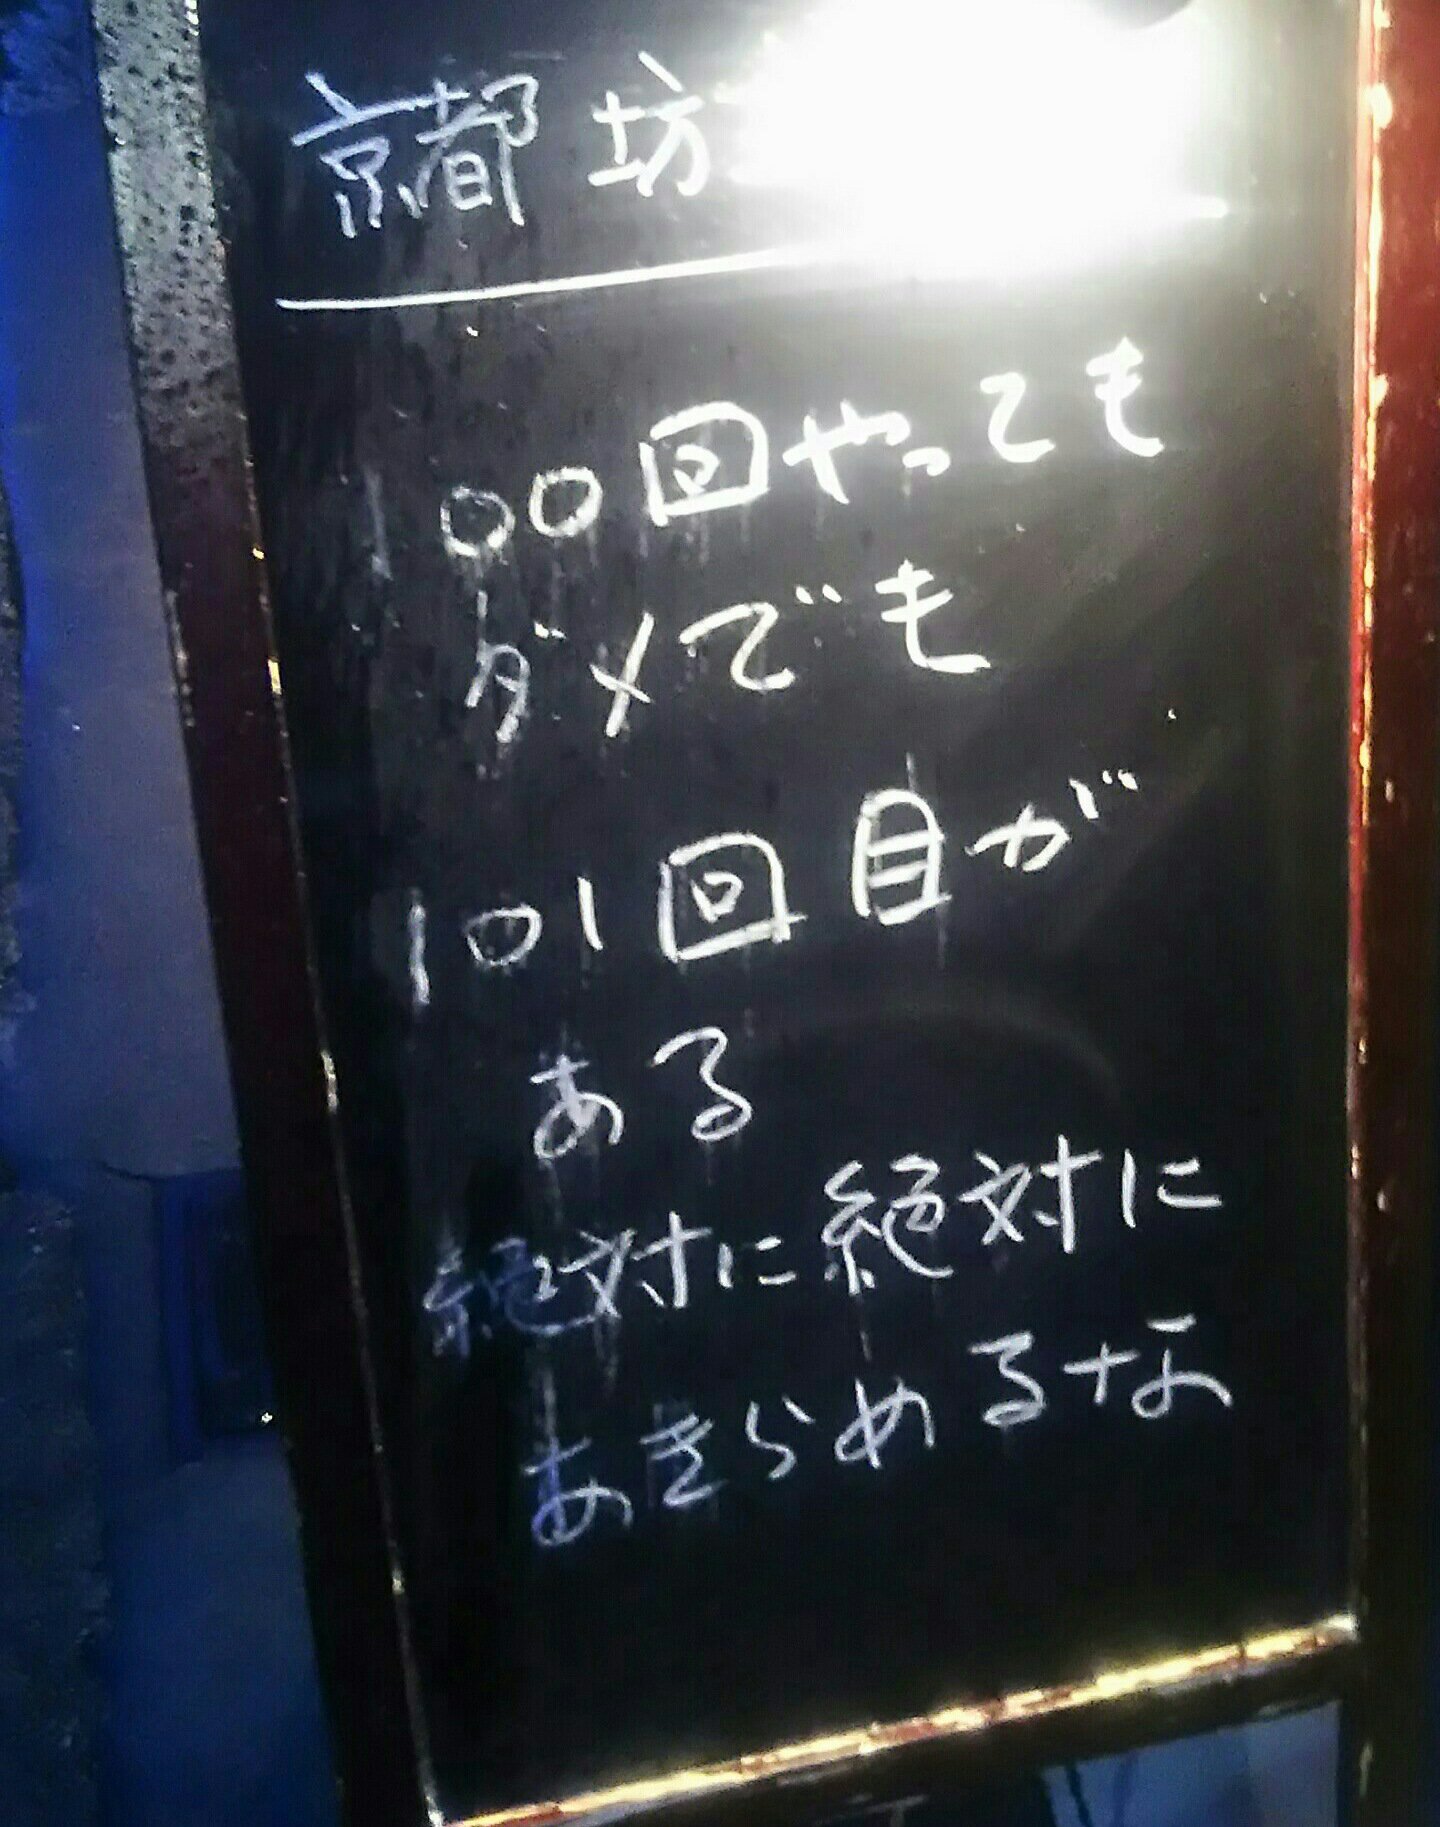 京都 坊
100回やっても
ダメでも
101回目が
ある
絶対に絶対に
あきらめるな